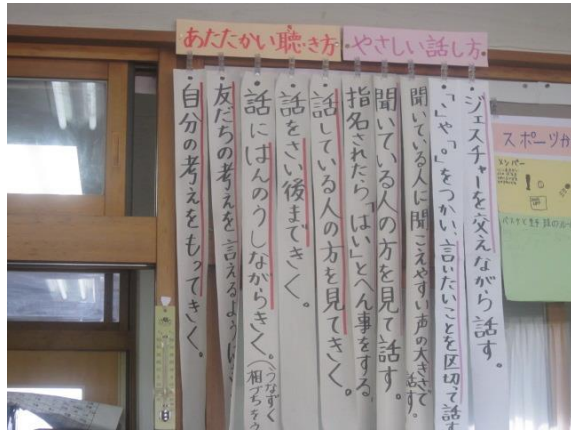 やさしい話し方
ジェスチャーを交えながら話す。
「、」や「。」をつかい、言いたいことを区切って話す
聞いている人に聞こえやすい声の大きさで話す。
聞いている人の方を見て話す。
指名されたら「はい」とへん事をする
あたたかい聴き方
話している人の方を見てきく。
話をさい後まできく。
話にはんのうしながらきく。(うなずく
相づちをう
友だちの考えを言えるように
自分の考えをもってきく。
スポーツ
メンバー